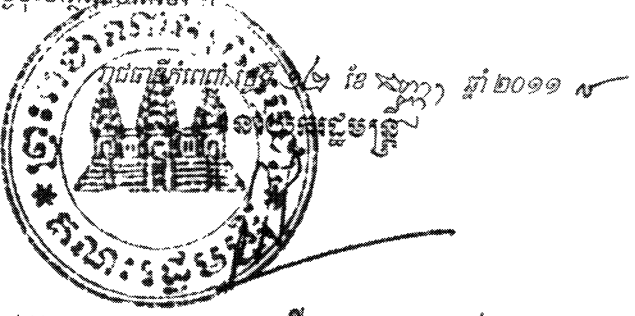 រាជធានីភ្នំពេញ ថ្ងៃទី ១៤ ខែ កញ្ញា ឆ្នាំ ២០១១
នាយករដ្ឋមន្ត្រី
ព្រះរាជាណាចក្រកម្ពុជា
គណៈរដ្ឋមន្ត្រី